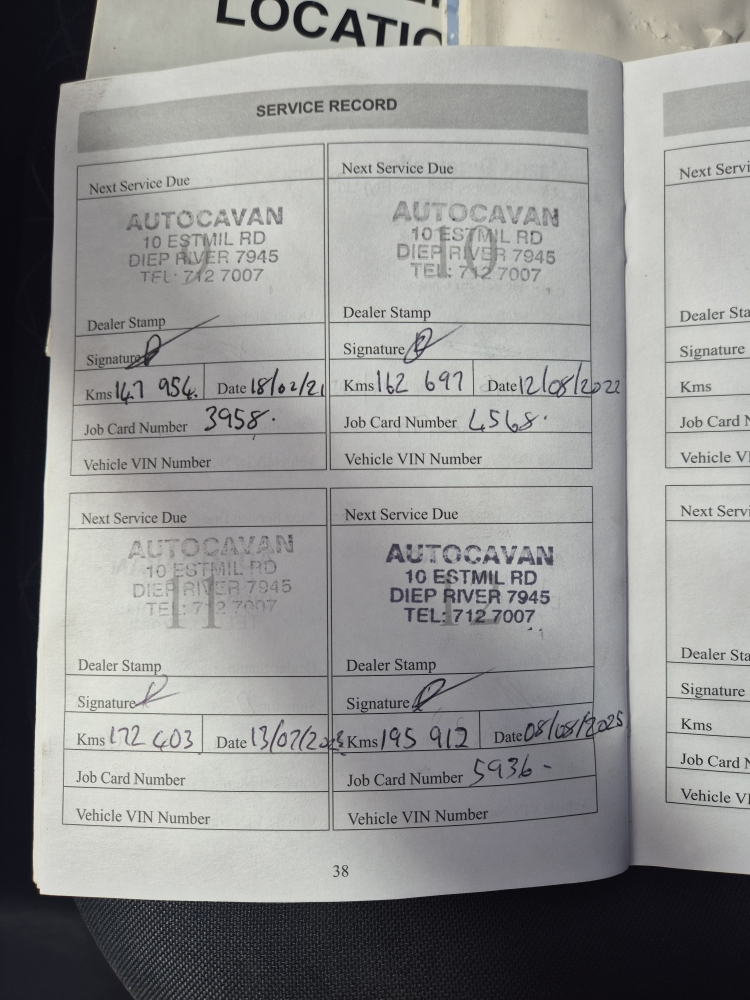 LOCATIO
SERVICE RECORD
Next Service Due
9
AUTOCAVAN
10 ESTMIL RD
DIEP RIVER 7945
TEL: 712 7007
Dealer Stamp
Signature
Kms 147 954. Date 18/02/21
Job Card Number 3958.
Vehicle VIN Number
Next Service Due
10
AUTOCAVAN
10 ESTMIL RD
DIEP RIVER 7945
TEL: 712 7007
Dealer Stamp
Signature
Kms 162 697 Date 12/08/2022
Job Card Number 4568.
Vehicle VIN Number
Next Service Due
11
AUTOCAVAN
10 ESTMIL RD
DIEP RIVER 7945
TEL: 712 7007
Dealer Stamp
Signature
Kms 172 403 Date 13/07/2023
Job Card Number
Vehicle VIN Number
Next Service Due
12
AUTOCAVAN
10 ESTMIL RD
DIEP RIVER 7945
TEL: 712 7007
Dealer Stamp
Signature
Kms 195 912 Date 08/08/2025
Job Card Number 5936-
Vehicle VIN Number
38
Next Servi
Dealer Sta
Signature
Kms
Job Card N
Vehicle VI
Next Servi
Dealer Sta
Signature
Kms
Job Card N
Vehicle VI